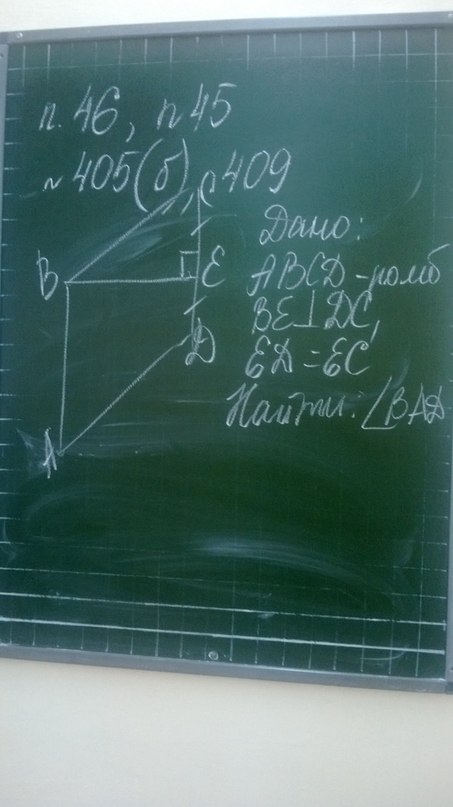 п. 46, п 45
~ 405(б), 409
C
Дано:
B
E
ABCD - ромб
BE⊥DC,
D
ED = EC
Найти: ∠BAD
A